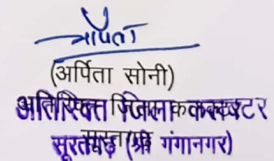 अर्पिता
(अर्पिता सोनी)
अतिरिक्त जिला कलक्टर
सूरतगढ़ (श्री गंगानगर)